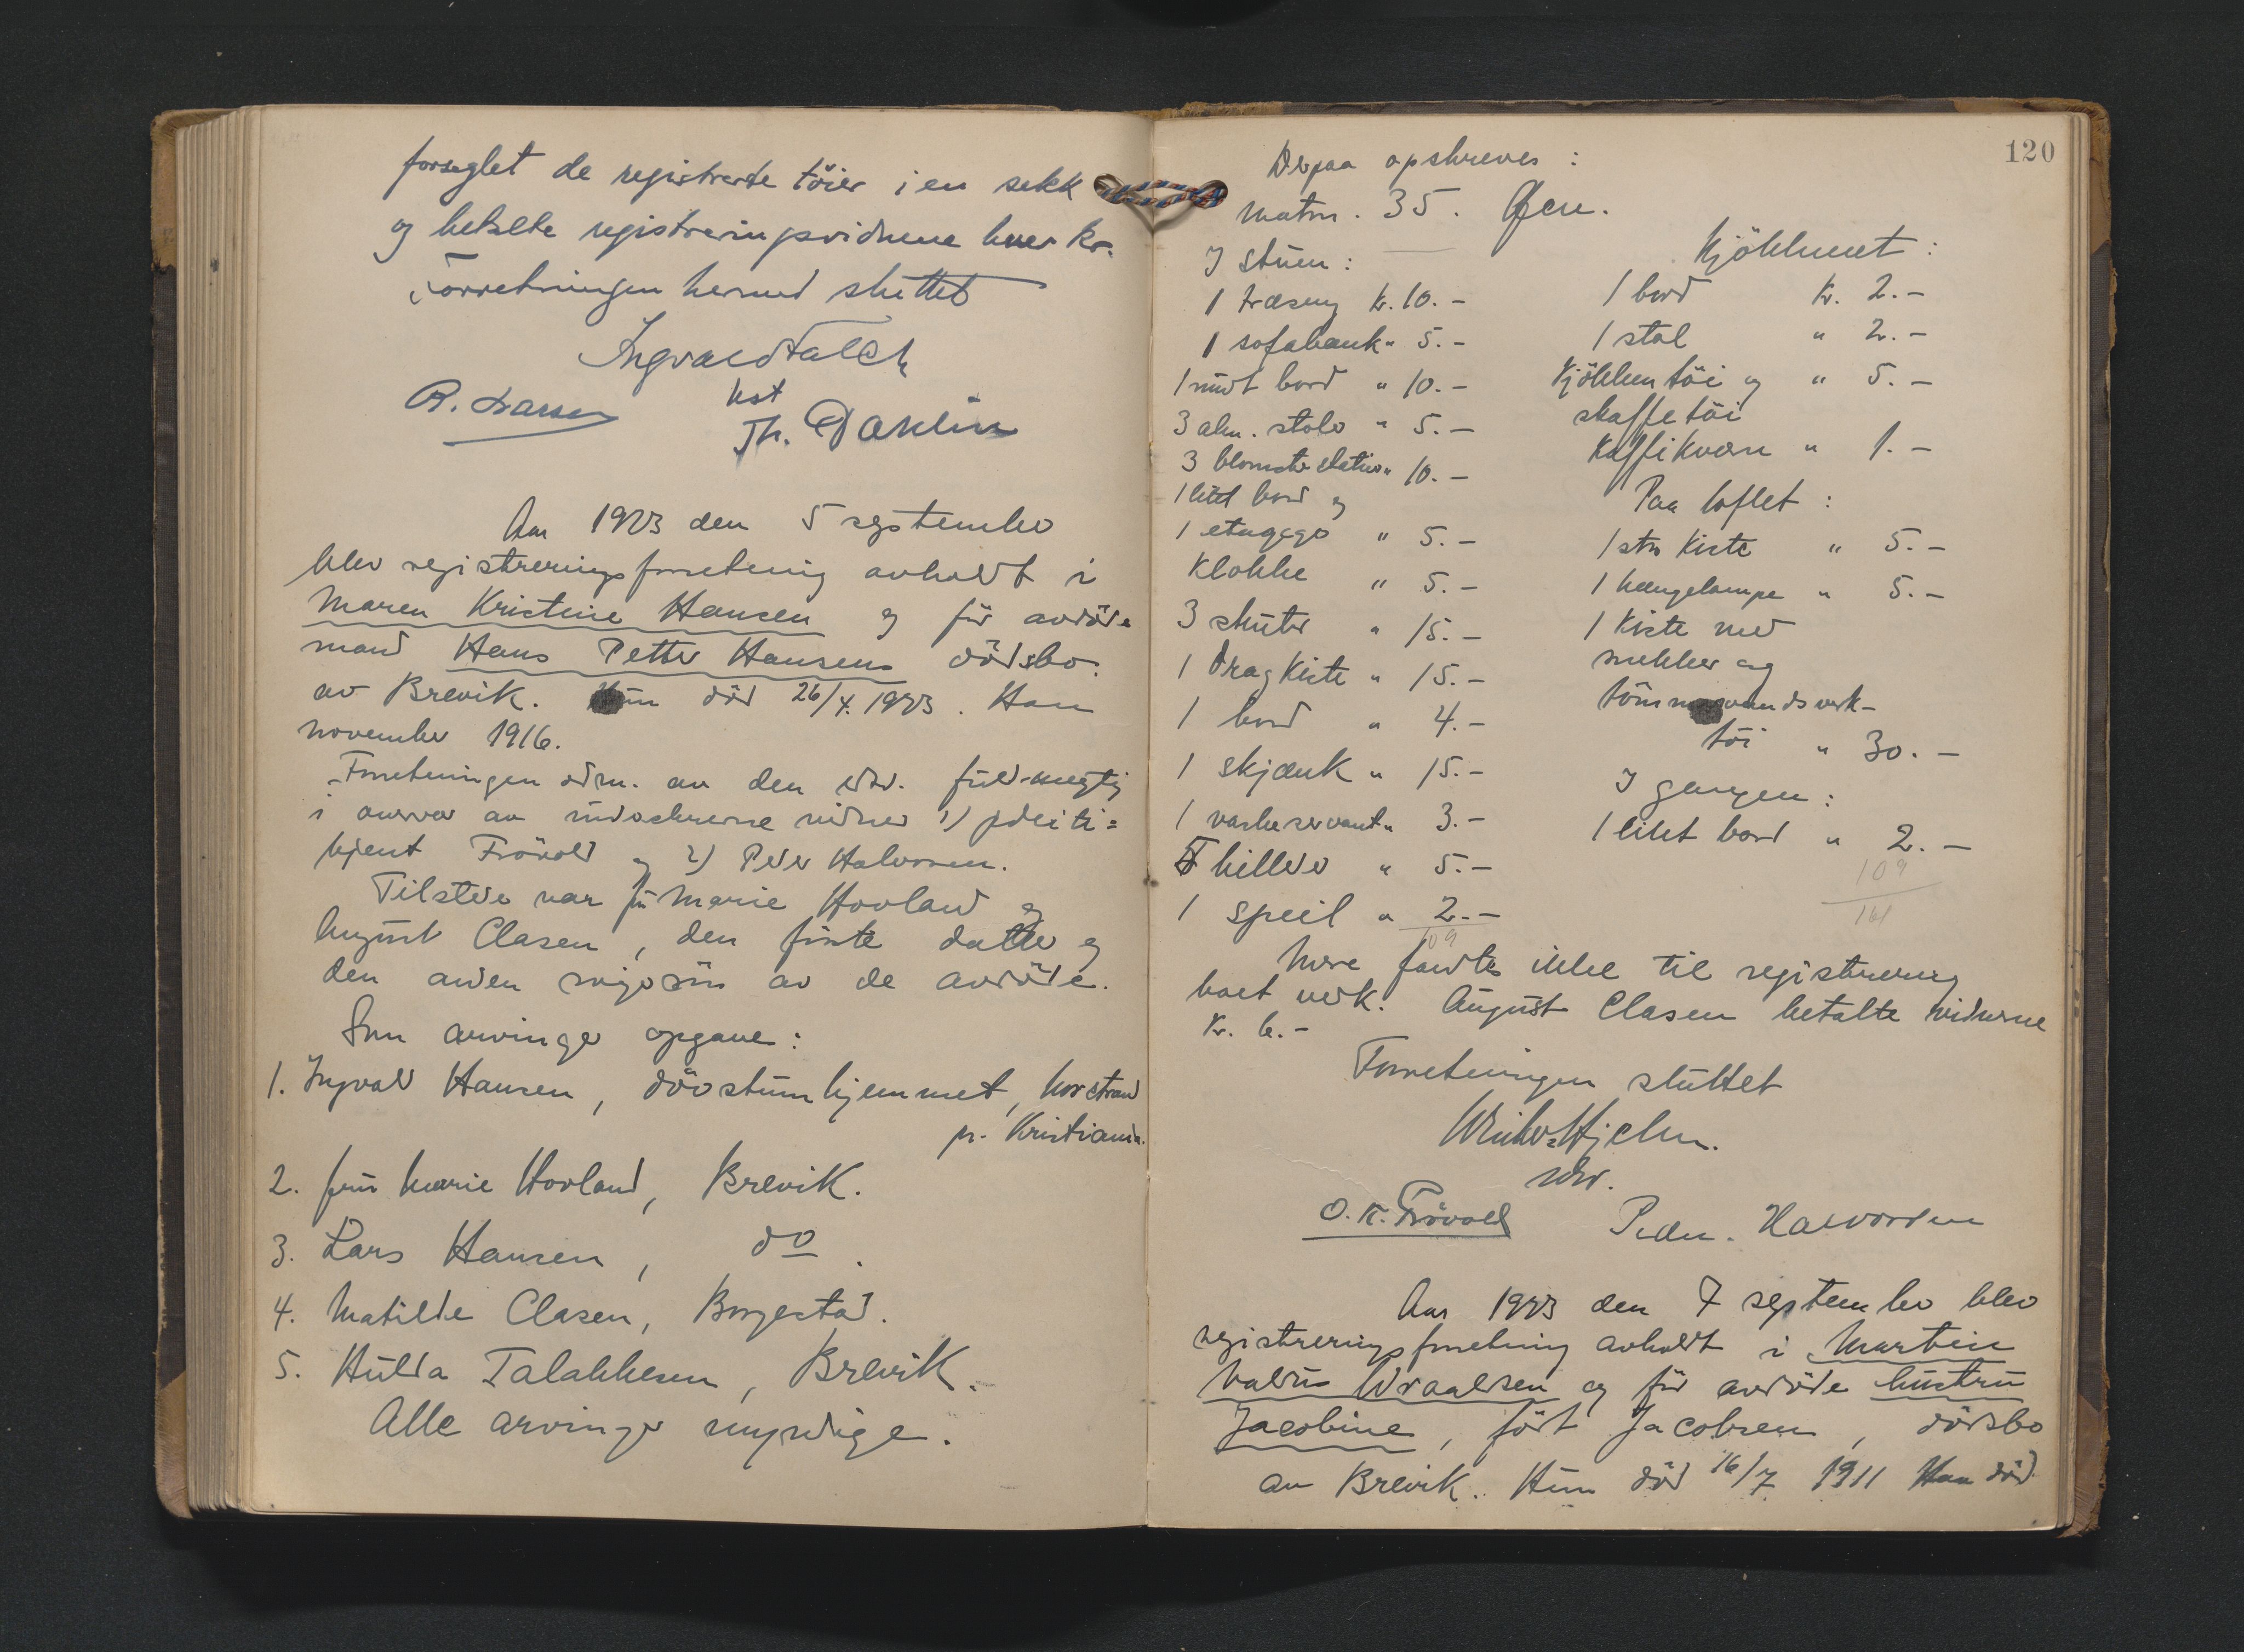 forseglet de registrerte töier i en sekk
og betalte registreringsvidnene hver kr.
Forretningen hermed sluttet
Ingvald Falch
R. Larsen
kst
Th. Dahlin
Aar 1923 den 5 september
blev registreringsforretning avholdt i
Maren Kristine Hansen og för avdöde
mand Hans Petter Hansens dödsbo
av Brevik. Hun död 26/4. 1923. Han
november 1916.
Forretningen adm. av den edsv. fuldmegtig
i overvær av undeskrevne vidner 1) politi=
bjent Frövold og 2) Peder Halvorsen.
Tilstede var fru Marie Hovland og
August Clasen, den förste datter og
den anden svigersön av de avdöde.
Som arvinger opgave:
1. Ingvald Hansen, dövstumhjemmet, Nordstrand
pr. Kristiania.
2. fru Marie Hovland, Brevik.
3. Lars Hansen, do.
4. Matilde Clasen, Borgestad.
5. Hulda Talakkesen, Brevik.
Alle arvinger myndige.
120
Derpaa opskreves:
Matrn. 35. Øen.
I stuen:
1 træseng kr. 10.-
1 sofabænk " 5.-
1 rundt bord " 10.-
3 alm. stoler " 5.-
3 blomsterstativer " 10.-
1 litet bord og
1 etagege " 5.-
Klokke " 5.-
3 skuter " 15.-
1 Dragkiste " 15.-
1 bord " 4.-
1 skjænk " 15.-
1 vaskeservant " 3.-
5 billeder " 5.-
1 speil " 2.-
109
Kjökkenet:
1 bord kr. 2.-
1 stol " 2.-
Kjökkentöi og " 5.-
skaffetöi
Kaffikværn " 1.-
Paa loftet:
1 stor Kiste " 5.-
1 hængelampe " 5.-
1 Kiste med
snekker og
tömmermandsverk-
töi " 30.-
I gangen:
1 litet bord " 2.-
109
161
Mere fandtes ikke til registrering
boet vedk. August Clasen betalte vidnerne
kr. 6.-
Forretningen sluttet
Winther=Hjelm.
edsv.
O. K. Frövold
Peder. Halvorsen
Aar 1923 den 7 september blev
registreringsforretning avholdt i Martin
Valdus Wraaldsen og för avdöde hustru
Jacobine, födt Jacobsen, dödsbo
av Brevik. Hun död 16/7 1911 Han död